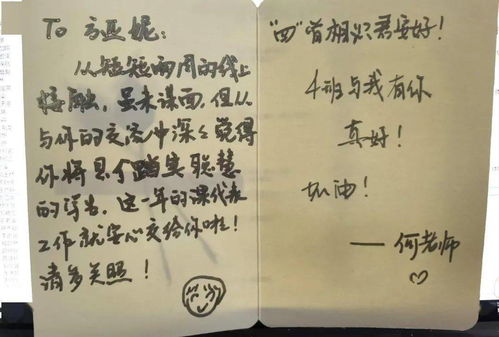 To 方亚妮:
从短短两周的线上
接触，虽未谋面，但从
与你的交流中深深觉得
你将是个踏实聪慧
的学生，这一年的课代表
工作就安心交给你啦！
请多关照！
"四"首相必君安好！
4班与我有你
真好！
加油！
——何老师